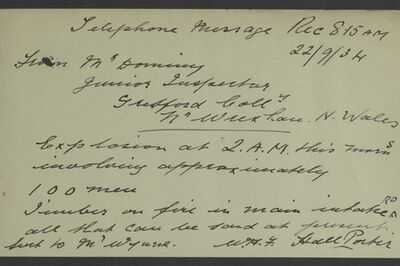 Telephone Message Rec 8 15 AM
22/9/34
From Mr Dominy
Junior Inspector
Gresford Colly
Nr Wrexham. N. Wales
Explosion at 2. A.M. this morng
involving approximately
100 men
Timber on fire in main intake RD
all that can be said at present
sent to Mr Wynne. Hall Porter